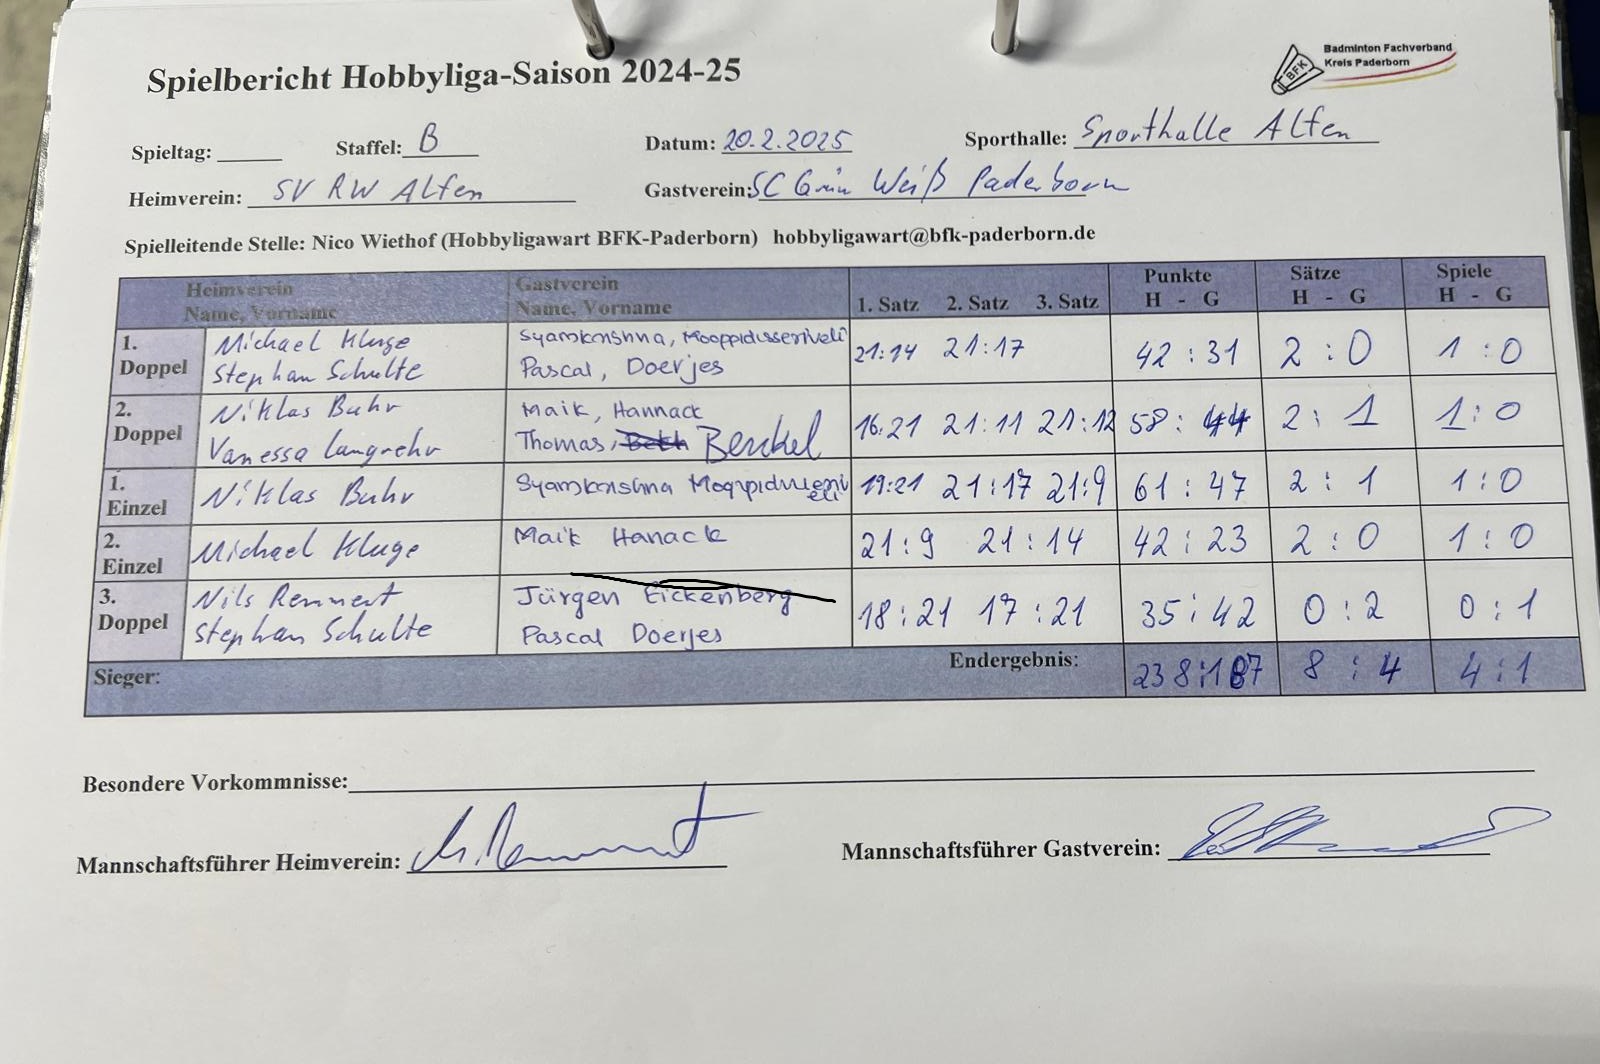 Spielbericht Hobbyliga-Saison 2024-25
Badminton Fachverband
Kreis Paderborn
BFK
Spieltag: Staffel: B Datum: 20.2.2025 Sporthalle: Sporthalle Alfen
Heimverein: SV RW Alfen Gastverein: SC Grün Weiß Paderborn
Spielleitende Stelle: Nico Wiethof (Hobbyligawart BFK-Paderborn) hobbyligawart@bfk-paderborn.de
Heimverein Gastverein Punkte Sätze Spiele
Name, Vorname Name, Vorname 1. Satz 2. Satz 3. Satz H - G H - G H - G
1. Michael Kluge Syamkrishna, Mooppidisseriveli
Doppel Stephan Schulte Pascal, Doerjes 21:14 21:17 42:31 2:0 1:0
2. Niklas Buhr Maik, Hannack
Doppel Vanessa Langrehr Thomas, Benkel 16:21 21:11 21:12 58:44 2:1 1:0
1. Einzel Niklas Buhr Syamkrishna 19:21 21:17 21:9 61:47 2:1 1:0
2. Einzel Michael Kluge Maik Hanack 21:9 21:14 42:23 2:0 1:0
3. Nils Remmert Jürgen Eickenberg
Doppel Stephan Schulte Pascal Doerjes 18:21 17:21 35:42 0:2 0:1
Sieger: Endergebnis: 238:187 8:4 4:1
Besondere Vorkommnisse:
Mannschaftsführer Heimverein: Mannschaftsführer Gastverein: